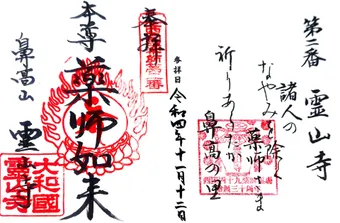 第二番 霊山寺
諸人の
なやみを除く
薬師さま
祈りあらたか
鼻高の里
参拝日 令和四年十一月十二日
奉拝
本尊 薬師如来
鼻高山 霊山寺
大和國
霊山寺